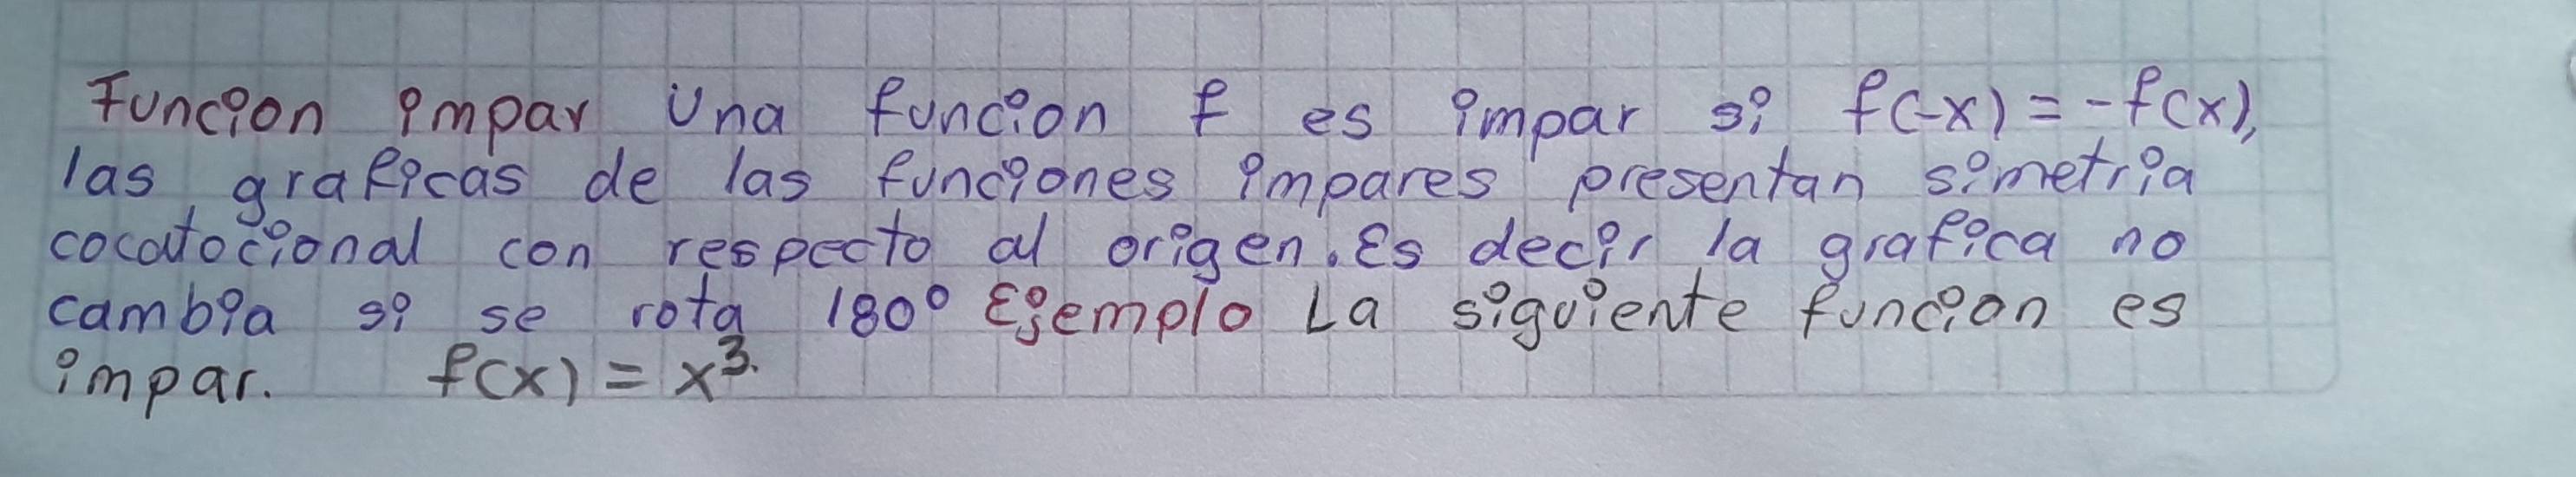 Funcion impar Una funcion f es impar si f(-x) = -f(x),
las graficas de las funciones impares presentan simetria
cocatocional con respecto al origen. Es decir la grafica no
cambia si se rota 180° Ejemplo La siguiente funcion es
impar. f(x) = x³.